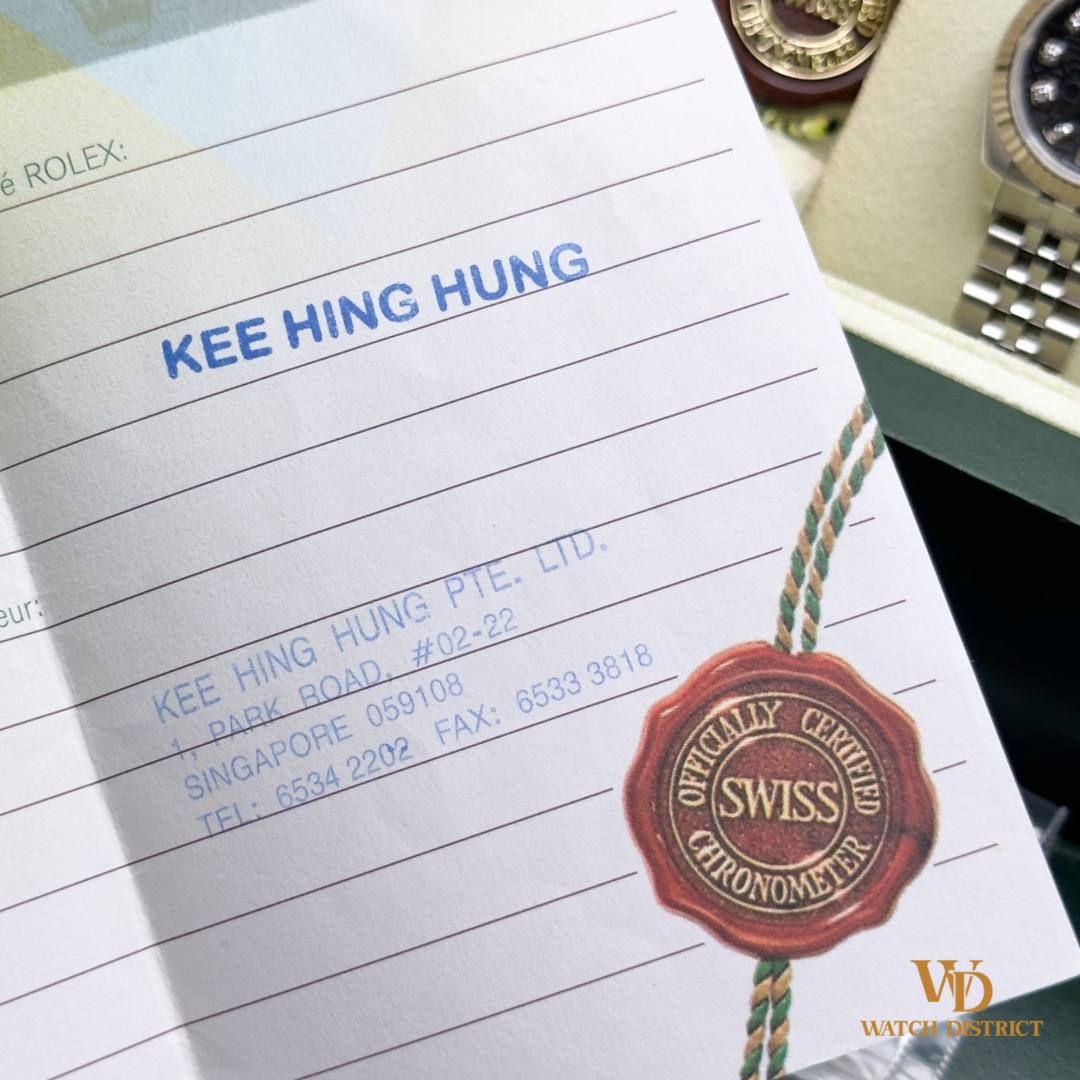 é ROLEX:
KEE HING HUNG
eur:
KEE HING HUNG PTE. LTD.
1, PARK ROAD, #02-22
SINGAPORE 059108
TEL: 6534 2202 FAX: 6533 3818
OFFICIALLY CERTIFIED
SWISS
CHRONOMETER
WD
WATCH DISTRICT